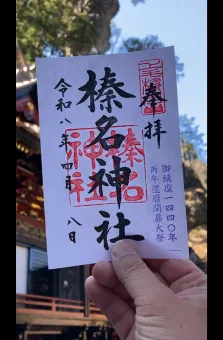 奉拝
榛名神社
令和八年四月八日
御鎮座一四四〇年
丙午還暦開扉大祭
榛名
神社